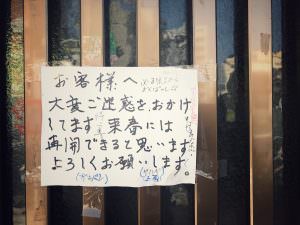 お客様へ
大変ご迷惑をおかけ
してます。来春には
再開できると思います
よろしくお願いします。